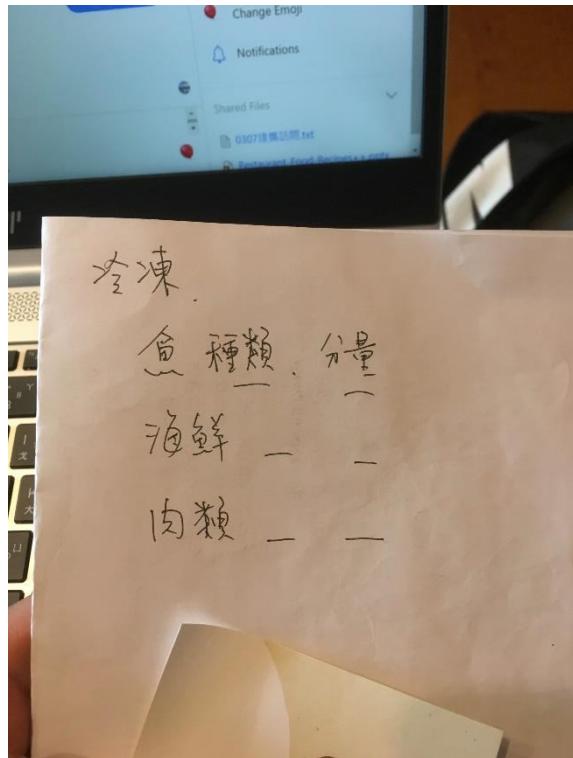 Change Emoji
Notifications
Shared Files
.txt
冷凍.
魚 種類. 分量
海鮮 — —
肉類 — —